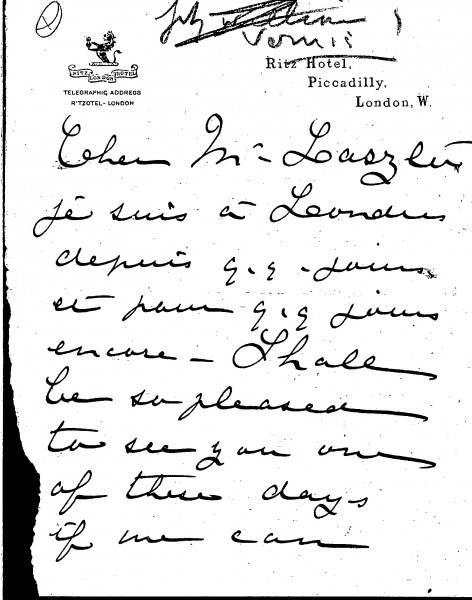 Ritz Hotel,
Piccadilly,
London, W.
RITZ HOTEL
LONDON
TELEGRAPHIC ADDRESS
RITZOTEL-LONDON
Cher Mr Laszlo
je suis à Londres
depuis q.q. jours
et pour q.q jours
encore – I hall
be so pleased
to see you one
of these days
if we can